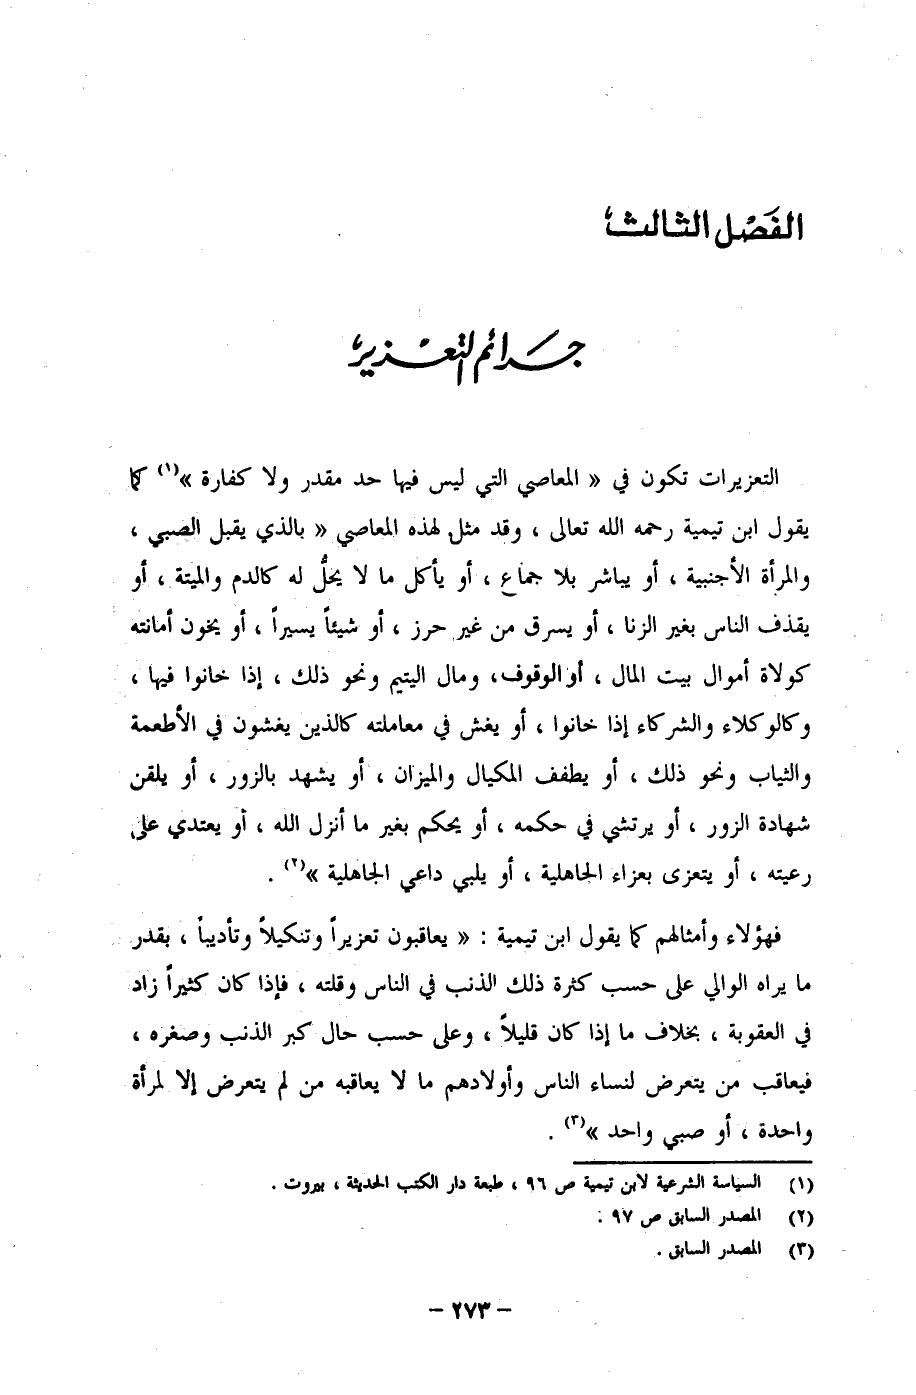 الفَصْل الثالث
جَرائم التعْزير
التعزيرات تكون في « المعاصي التي ليس فيها حد مقدر ولا كفارة »(١) كما
يقول ابن تيمية رحمه الله تعالى ، وقد مثل لهذه المعاصي « بالذي يقبل الصبي ،
والمرأة الأجنبية ، أو يباشر بلا جماع ، أو يأكل ما لا يحلُّ له كالدم والميتة ، أو
يقذف الناس بغير الزنا ، أو يسرق من غير حرز ، أو شيئاً يسيراً ، أو يخون أمانته
كولاة أموال بيت المال ، أو الوقوف، ومال اليتيم ونحو ذلك ، إذا خانوا فيها ،
وكالوكلاء والشركاء إذا خانوا ، أو يغش في معاملته كالذين يغشون في الأطعمة
والثياب ونحو ذلك ، أو يطفف المكيال والميزان ، أو يشهد بالزور ، أو يلقن
شهادة الزور ، أو يرتشي في حكمه ، أو يحكم بغير ما أنزل الله ، أو يعتدي على
رعيته ، أو يتعزى بعزاء الجاهلية ، أو يلبي داعي الجاهلية »(٢) .
فهؤلاء وأمثالهم كما يقول ابن تيمية : « يعاقبون تعزيراً وتنكيلاً وتأديباً ، بقدر
ما يراه الوالي على حسب كثرة ذلك الذنب في الناس وقلته ، فإذا كان كثيراً زاد
في العقوبة ، بخلاف ما إذا كان قليلاً ، وعلى حسب حال كبر الذنب وصغره ،
فيعاقب من يتعرض لنساء الناس وأولادهم ما لا يعاقبه من لم يتعرض إلا لمرأة
واحدة ، أو صبي واحد »(٣) .
(١) السياسة الشرعية لابن تيمية ص ٩٦ ، طبعة دار الكتب الحديثة ، بيروت .
(٢) المصدر السابق ص ٩٧ :
(٣) المصدر السابق .
– ٢٧٣ –